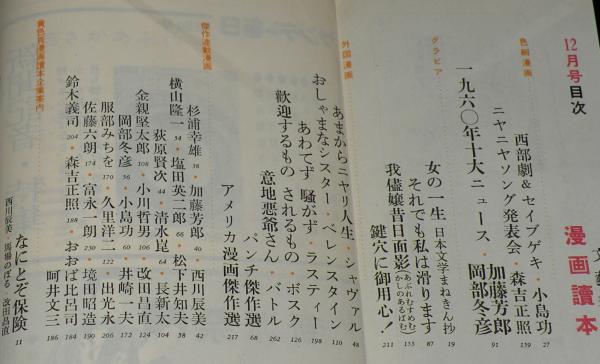 12月号目次
漫画讀本
色刷漫画
西部劇&セイブゲキ・小島功 27
ニヤニヤソング発表会・森吉正照 139
一九六〇年十大ニュース・加藤芳郎 岡部冬彦 91
グラビア
女の一生 日本文学まねきん抄 19
それでも私は滑ります 87
我儘嬢昔日面影(あぷれむすめむかしのあるばむ) 133
鍵穴に御用心! 211
外国漫画
あまからニヤリ人生・シャヴァル 48
おしゃまなシスター・ベレンスタイン 110
あわてず 騒がず・ラスティー 198
歓迎するもの されるもの・ボスク 126
意地悪爺さん・バトル 262
パンチ傑作選 68
アメリカ漫画傑作選 217
傑作連載漫画
杉浦幸雄 38・加藤芳郎 40・西川辰美 42
横山隆一 34・塩田英二郎 66・松下井知夫 38
荻原賢次 44・清水崑 64・長新太 104
金親堅太郎 108・小川哲男 106・改田昌直 124
岡部冬彦 36・小島功 60・井崎一夫 172
服部みちを 170・久里洋二 122・出光永 206
佐藤六朗 174・富永一朗 230・境田昭造 190
鈴木義司 204・森吉正照 188・おおば比呂司 184
阿井文三 186
黄色頁漫画讀本企業案内
なにとぞ保険 11
西川辰美・馬場のぼる・改田昌直